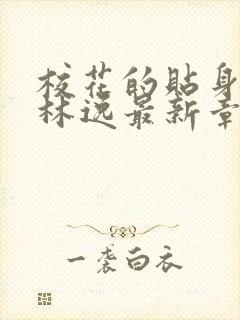 校花的贴身
林逸最新章
一袭白衣